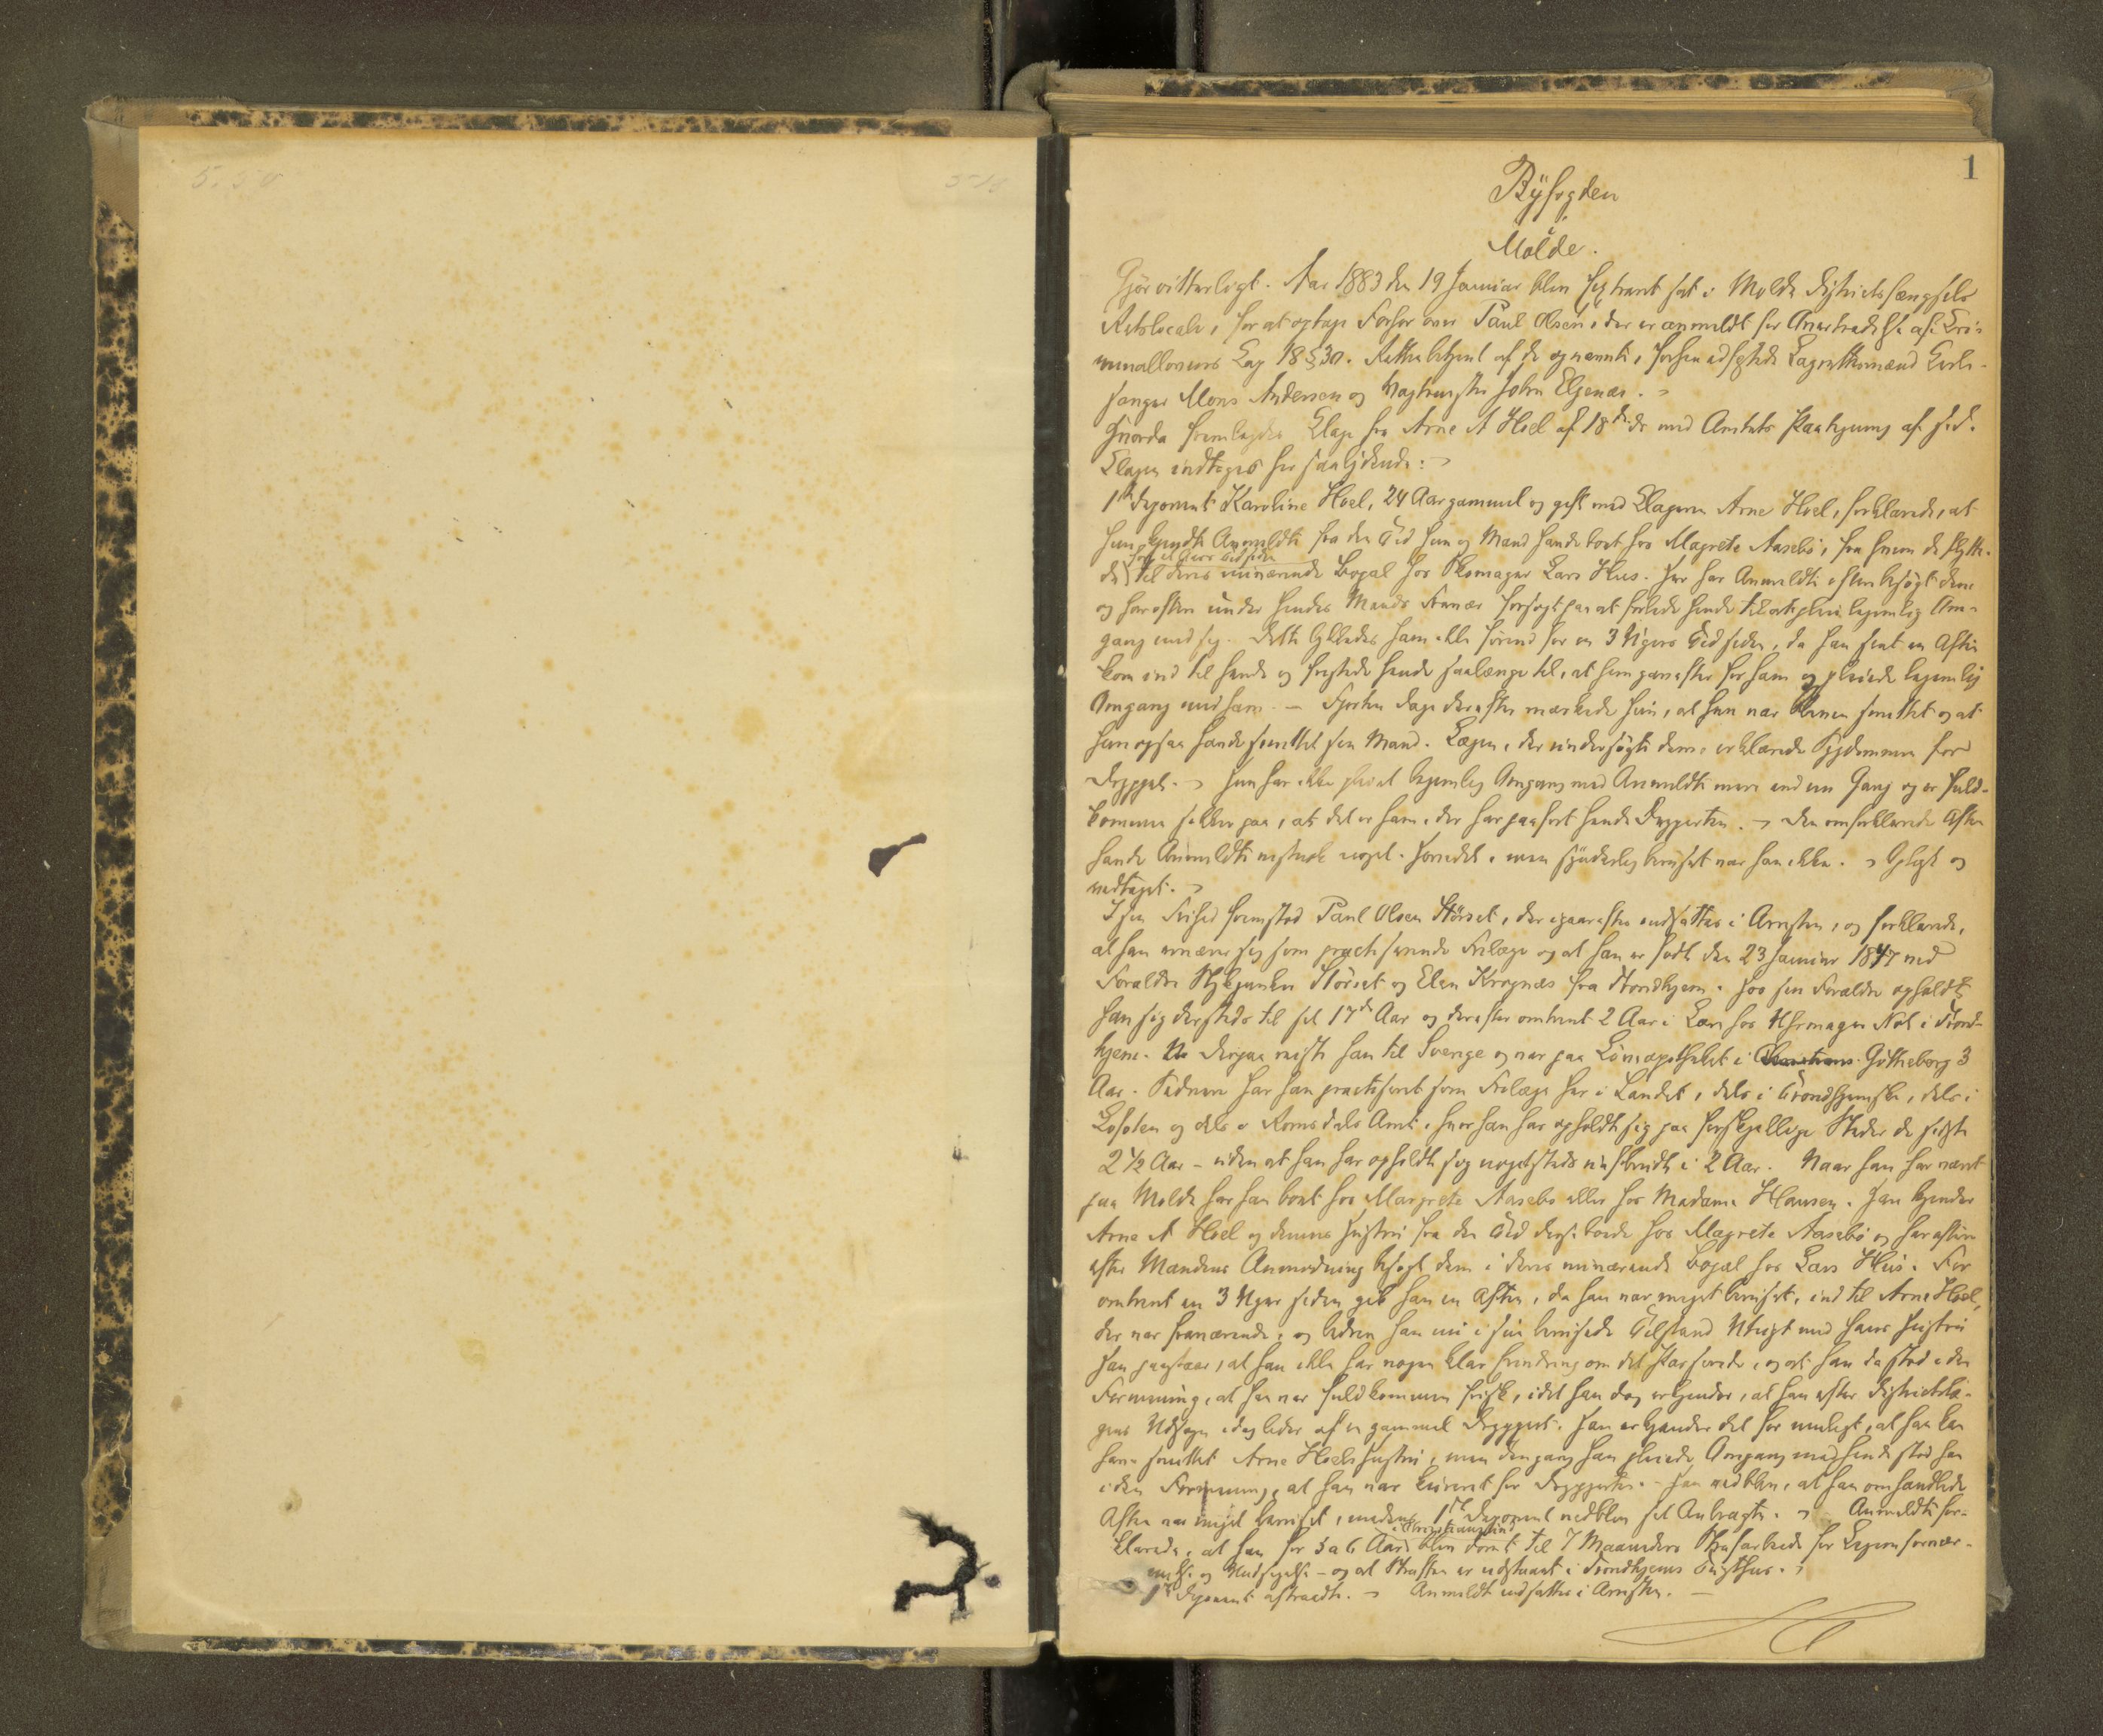 5.50
1
Byfogden
i
Molde.
Gjör vitterligt. Aar 1883 den 19 Januar blev Extraret sat i Molde Distriktsfængsels
Retslocale, for at optage Forhør over Paul Olsen, der er anmeldt for Overtrædelse af Cri-
minallovens Cap 18 § 30. Retten betjent af de opnævnte, forhen edfæstede Lagrettesmænd Kirke-
sanger Mons Andersen og Vagtmester John Elgenæs.
Hvorda fremlagdes Klage fra Arne A Hoel af 18de ds med Amtets Paategning af s. d.
Klagen indtages her saalydende:
1ste Deponent Karoline Hoel, 24 Aar gammel og gift med Klageren Arne Hoel, forklarede, at
hun kjendte Anmeldte fra den Tid hun og Mand havde boet hos Magrete Aasebö, fra hvem de flytte-
for et Aars Tid siden
de til deres nuværende Bopæl hos Skomager Lars Huus. Her har Anmeldte oftere besøgt dem
og har oftere under hendes Mands Fravær forsøgt paa at forlede hende til at pleie legemlig Om-
gang med sig. Dette lykkedes ham ikke førend for en 3 Ugers Tid siden, da han sent en Aften
kom ind til hende og fristede hende saalænge til, at hun gav efter for ham og pleiede legemlig
Omgang med ham. — Fjorten Dage derefter mærkede hun, at hun var bleven smittet og at
hun ogsaa havde smittet sin Mand. Lægen, der undersøgte dem, erklærede Sygdommen for
Dryppert. Hun har ikke pleiet legemlig Omgang med Anmeldte mere end en Gang og er fuld-
kommen sikker paa, at det er ham, der har paaført hende Dryperten. Den omforklarede Aften
havde Anmeldte nok noget i Hovedet, men synderlig beruset var han ikke. Oplæst og
vedtaget.
I sin Frihed fremstod Paul Olsen Störset, der igaaraftes indsattes i Arresten, og forklarede,
at han ernærer sig som practiserende Frilæge og at han er født den 23 Januar 1847 ved
Forældre Ole Störset og Elen Krognæs fra Trondhjem. Hos sin Forældre opholdt
han sig dersteds til sit 17de Aar og derefter omtrent 2 Aar i Lære hos Uhrmager i Trond-
hjem. Derpaa reiste han til Sverige og var paa Löveapotheket i Götheborg 3
Aar. Sidenere har han practiseret som Frilæge her i Landet, dels i Trondhjemske, dels i
Lofoten og dels i Romsdals Amt, hvor han har opholdt sig paa forskjellige Steder de sidste
2 1/2 Aar – uden at han har opholdt sig nogetsteds uafbrudt i 2 Aar. Naar han har været
paa Molde har han boet hos Margrete Aasebo eller hos Madame Hansen. Han kjender
Arne A Hoel og dennes Hustru fra den Tid disse boede hos Magrete Aasebö og har oftere
efter Mandens Anmodning besøgt dem i deres nuværende Bopæl hos Lars Huus. For
omtrent en 3 Uger siden gik han en Aften, da han var meget beruset, ind til Arne Hoel,
der var fraværende, og bedrev han nu i sin berusede Tilstand Utugt med hans Hustru
Han paastaar, at han ikke har nogen klar Erindring om det Passerede, og at han da stod i den
Formening, at han var fuldkommen frisk, idet han dog erkjender, at han efter Districtslæ-
gens Udsagn idag lider af en gammel Dryppert. Han erkjender det for muligt, at han kan
have smittet Arne Hoels Hustru, men dengang han pleiede Omgang med hende stod han
i den Formening, at han var kureret for Dryperten. – Han vedblev, at han omhandlede
Aften var meget beruset, medens 1ste Deponent vedblev sit Anbragte. Anmeldte for-
i Christiansund
klarede, at han for 5 a 6 Aar blev dømt til 7 Maaneders Strafarbeide for Legemsfornær-
melse og Modsigelse – og at Straffen er udstaaet i Trondhjems Tugthus.
1ste Deponent aftraadte. Anmeldte indsattes i Arresten. —